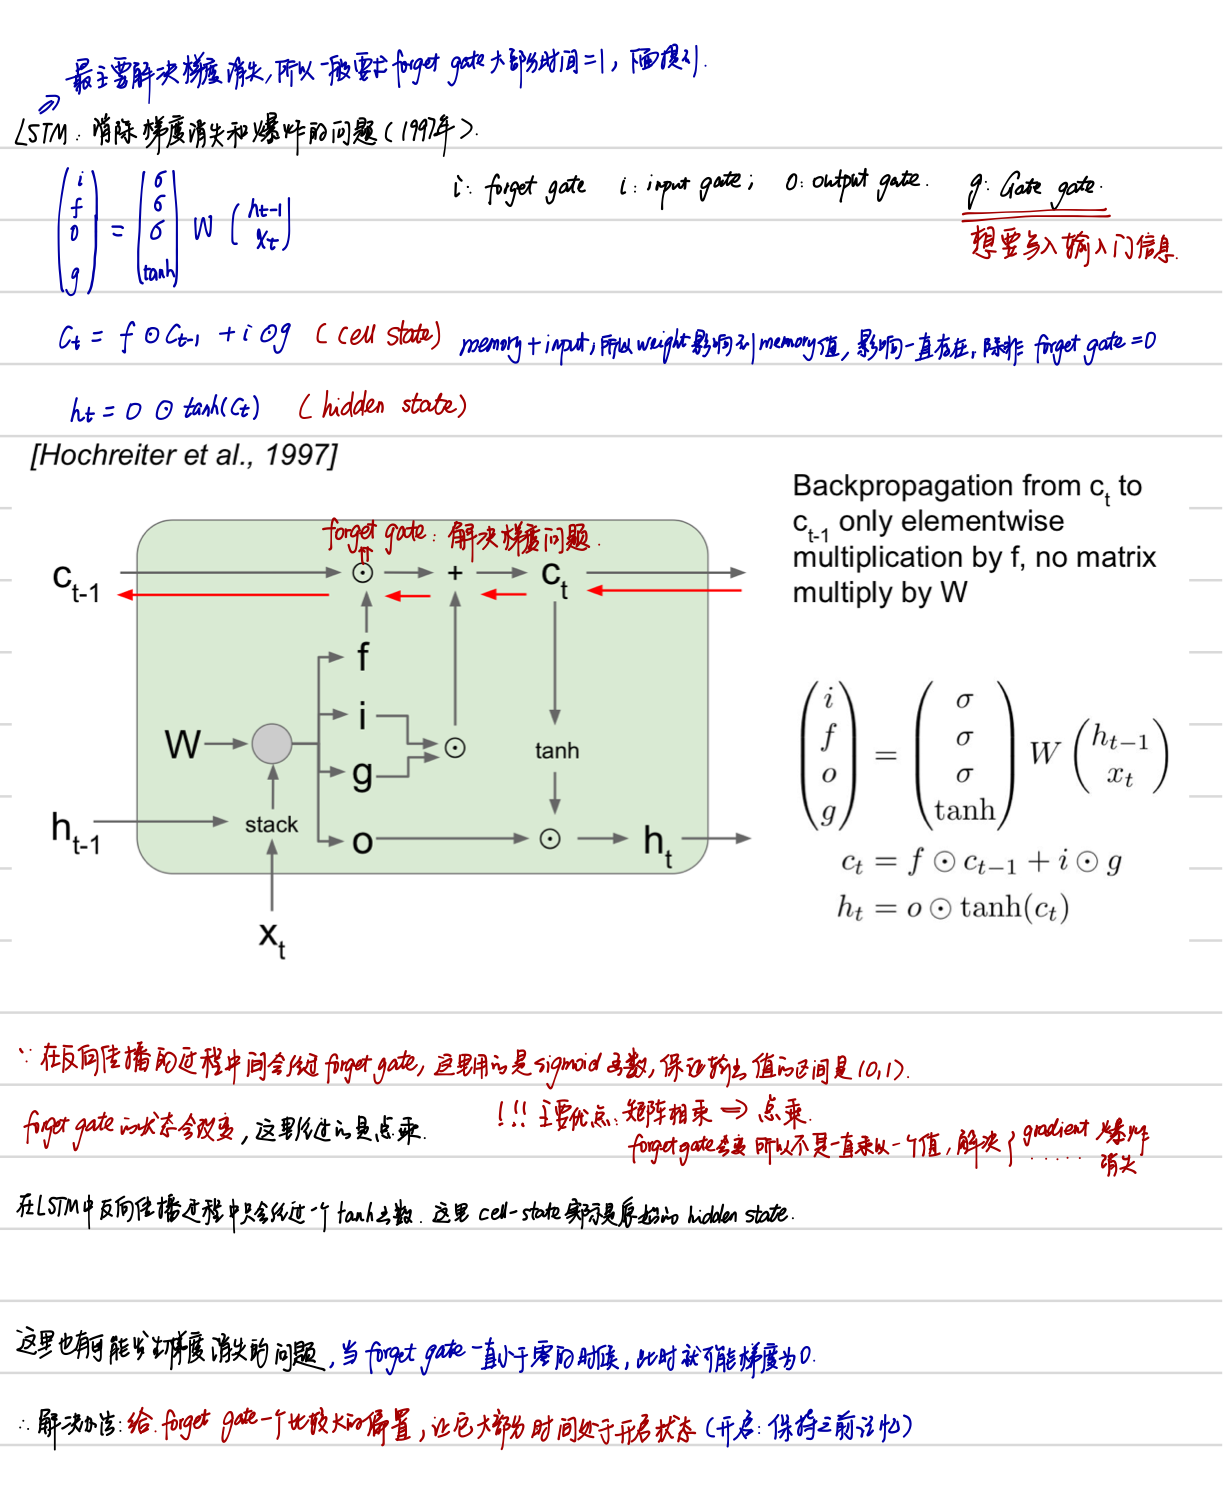 最主要解决梯度消失,所以一般要让forget gate大部分时间=1，下面提到.
LSTM：消除梯度消失和爆炸的问题（1997年）.
i: forget gate i: input gate; O: output gate. g: Gate gate.
想要写入输入门信息.
( i f o g ) = ( σ σ σ tanh ) W ( ht-1 xt )
Ct = f ⊙ Ct-1 + i ⊙ g (cell state) memory+input,所以weight影响到memory值,影响一直存在,除非 forget gate=0
ht = O ⊙ tanh(Ct) (hidden state)
[Hochreiter et al., 1997]
Backpropagation from ct to
ct-1 only elementwise
multiplication by f, no matrix
multiply by W
forget gate: 解决梯度问题.
ct-1 ⊙ + ct
f
W i ⊙ tanh
g
ht-1 stack o ⊙ ht
xt
( i f o g ) = ( σ σ σ tanh ) W ( ht−1 xt )
ct = f ⊙ ct−1 + i ⊙ g
ht = o ⊙ tanh(ct)
∵ 在反向传播的过程中间会经过forget gate, 这里用的是sigmoid函数,保证输出值的区间是(0,1).
forget gate的状态会改变,这里经过的是点乘.
!!! 主要优点: 矩阵相乘 ⇒ 点乘.
forget gate会变 所以不是一直乘以一个值,解决了gradient 爆炸
...... 消失
在LSTM中反向传播过程中只会经过一个tanh函数. 这里cell-state实际是原始的hidden state.
这里也有可能发生梯度消失的问题,当forget gate一直小于零的时候,此时就可能梯度为0.
∴ 解决办法: 给forget gate一个比较大的偏置,让它大部分时间处于开启状态(开启: 保持之前记忆)